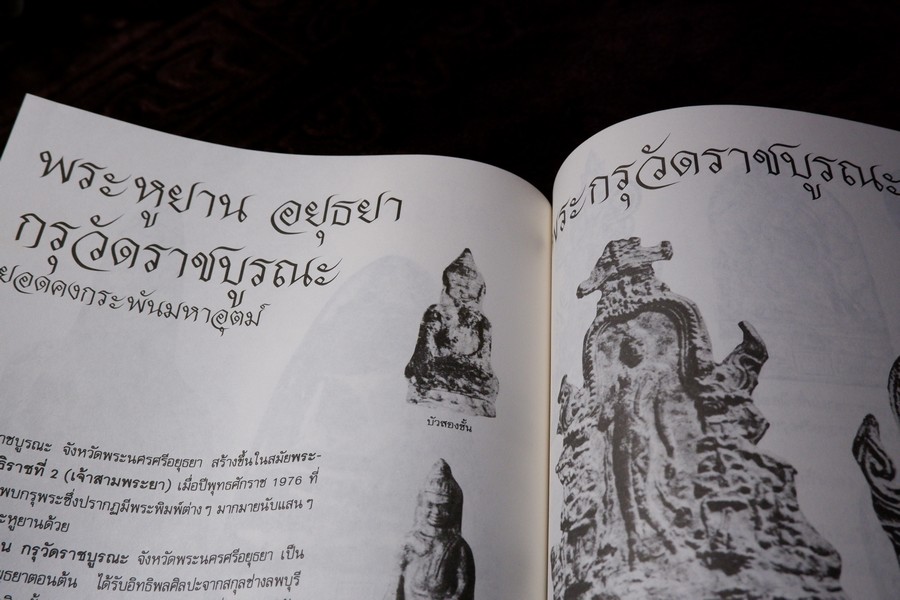 พระหูยาน อยุธยา
กรุวัดราชบูรณะ
ยอดคงกระพันมหาอุตม์
บัวสองชั้น
ราชบูรณะ จังหวัดพระนครศรีอยุธยา สร้างขึ้นในสมัยพระ-
ธิราชที่ 2 (เจ้าสามพระยา) เมื่อปีพุทธศักราช 1976 ที่
พบกรุพระซึ่งปรากฏมีพระพิมพ์ต่างๆ มากมายนับแสนๆ
ะหูยานด้วย
น กรุวัดราชบูรณะ จังหวัดพระนครศรีอยุธยา เป็น
ยุธยาตอนต้น ได้รับอิทธิพลศิลปะจากสกุลช่างลพบุรี
พระกรุวัดราชบูรณะ